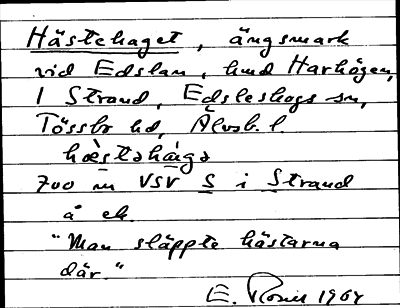 Hästehaget, ängsmark
vid Edslan, hmd Harhögen,
1 Strand, Edsleskogs sn,
Tössbo hd, Älvsb. l.
hæ̀stəhá̱gə
700 m VSV S i Strand
å ek.
"Man släppte hästarna
där."
E. 1964